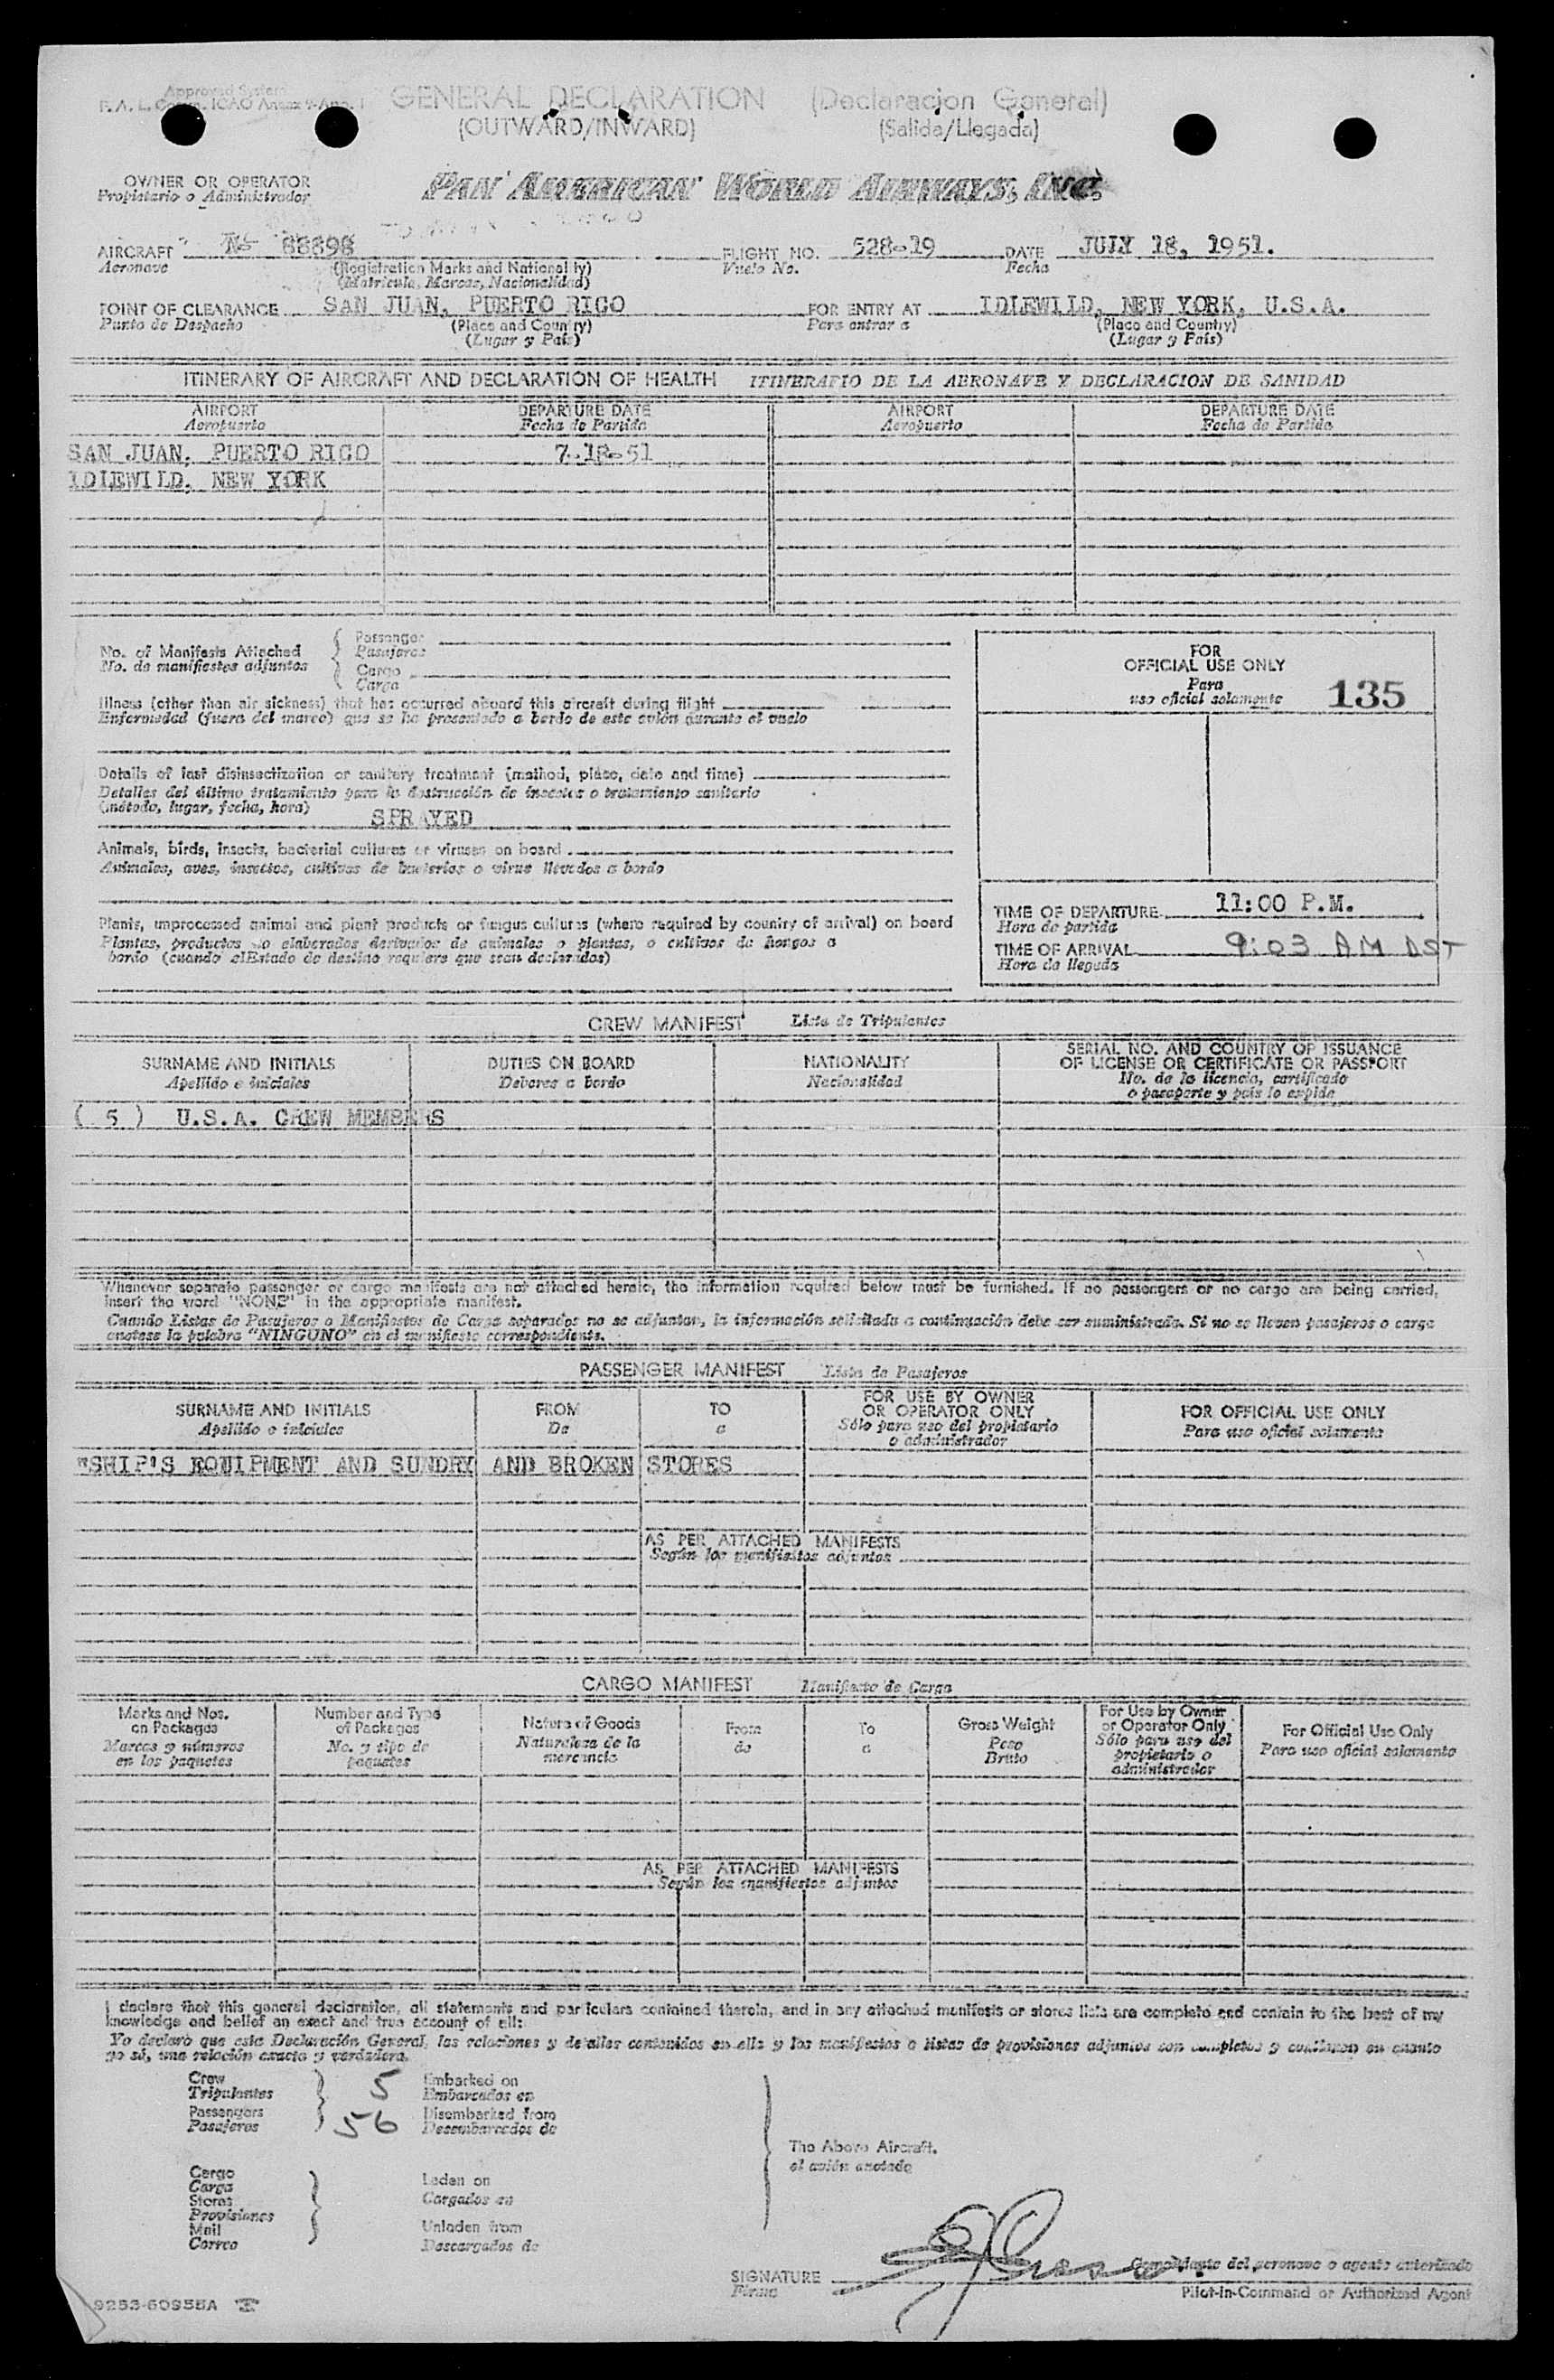 Approved System
F. A. L. Comm. ICAO Annex 9-App. 1
GENERAL DECLARATION (Declaracion General)
(OUTWARD/INWARD) (Salida/Llegada)
OWNER OR OPERATOR PAN AMERICAN WORLD AIRWAYS, INC.
Propietario o Administrador
AIRCRAFT N- 88898 FLIGHT NO. 528-19 DATE JULY 18, 1951.
Aeronave (Registration Marks and Nationality) Vuelo No. Fecha
(Matricula, Marcas, Nacionalidad)
POINT OF CLEARANCE SAN JUAN, PUERTO RICO FOR ENTRY AT IDLEWILD, NEW YORK, U.S.A.
Punto de Despacho (Place and Country) Para entrar a (Place and Country)
(Lugar y País) (Lugar y País)
ITINERARY OF AIRCRAFT AND DECLARATION OF HEALTH ITINERARIO DE LA AERONAVE Y DECLARACION DE SANIDAD
AIRPORT DEPARTURE DATE AIRPORT DEPARTURE DATE
Aeropuerto Fecha de Partida Aeropuerto Fecha de Partida
SAN JUAN, PUERTO RICO 7-18-51
IDLEWILD, NEW YORK
No. of Manifests Attached { Passenger
No. de manifiestos adjuntos Pasajeros
{ Cargo
Carga
FOR
OFFICIAL USE ONLY
Para
uso oficial solamente 135
Illness (other than air sickness) that has occurred aboard this aircraft during flight
Enfermedad (fuera del mareo) que se ha presentado a bordo de este avión durante el vuelo
Details of last disinsectization or sanitary treatment (method, place, date and time)
Detalles del último tratamiento para la destrucción de insectos o tratamiento sanitario
(método, lugar, fecha, hora)
SPRAYED
Animals, birds, insects, bacterial cultures or viruses on board
Animales, aves, insectos, cultivos de bacterias o virus llevados a bordo
Plants, unprocessed animal and plant products or fungus cultures (where required by country of arrival) on board
Plantas, productos no elaborados derivados de animales o plantas, o cultivos de hongos a
bordo (cuando elEstado de destino requiera que sean declarados)
TIME OF DEPARTURE 11:00 P.M.
Hora de partida
TIME OF ARRIVAL 9:03 AM DST
Hora de llegada
CREW MANIFEST Lista de Tripulantes
SURNAME AND INITIALS DUTIES ON BOARD NATIONALITY SERIAL NO. AND COUNTRY OF ISSUANCE
OF LICENSE OR CERTIFICATE OR PASSPORT
Apellido e iniciales Deberes a bordo Nacionalidad No. de la licencia, certificado
o pasaporte y país lo expide
( 5 ) U.S.A. CREW MEMBERS
Whenever separate passenger or cargo manifests are not attached hereto, the information required below must be furnished. If no passengers or no cargo are being carried,
insert the word "NONE" in the appropriate manifest.
Cuando Listas de Pasajeros o Manifiestos de Carga separados no se adjuntan, la información solicitada a continuación debe ser suministrada. Si no se llevan pasajeros o carga
anotese la palabra "NINGUNO" en el manifiesto correspondiente.
PASSENGER MANIFEST Lista de Pasajeros
SURNAME AND INITIALS FROM TO FOR USE BY OWNER
OR OPERATOR ONLY FOR OFFICIAL USE ONLY
Apellido e iniciales De a Sólo para uso del propietario
o administrador Para uso oficial solamente
"SHIP'S EQUIPMENT AND SUNDRY AND BROKEN STORES
AS PER ATTACHED MANIFESTS
Según los manifiestos adjuntos
CARGO MANIFEST Manifiesto de Carga
Marks and Nos.
on Packages
Marcas y números
en los paquetes
Number and Type
of Packages
No. y tipo de
paquetes
Nature of Goods
Naturaleza de la
mercancia
From
de
To
a
Gross Weight
Peso
Bruto
For Use by Owner
or Operator Only
Sólo para uso del
propietario o
administrador
For Official Use Only
Para uso oficial solamente
AS PER ATTACHED MANIFESTS
Según los manifiestos adjuntos
I declare that this general declaration, all statements and particulars contained therein, and in any attached manifests or stores lists are complete and contain to the best of my
knowledge and belief an exact and true account of all:
Yo declaro que esta Declaración General, las relaciones y detalles contenidos en ella y los manifiestos o listas de provisiones adjuntos son completos y contienen en cuanto
yo sé, una relación exacta y verdadera.
Crew 5 Embarked on
Tripulantes Embarcados en
Passengers 56 Disembarked from
Pasajeros Desembarcados de
The Above Aircraft.
el avión anotado
Cargo Laden on
Carga
Stores Cargados en
Provisiones
Mail Unladen from
Correo Descargados de
Comandante del aeronave o agente autorizado
SIGNATURE
Firma Pilot-in-Command or Authorized Agent
9253-60955A